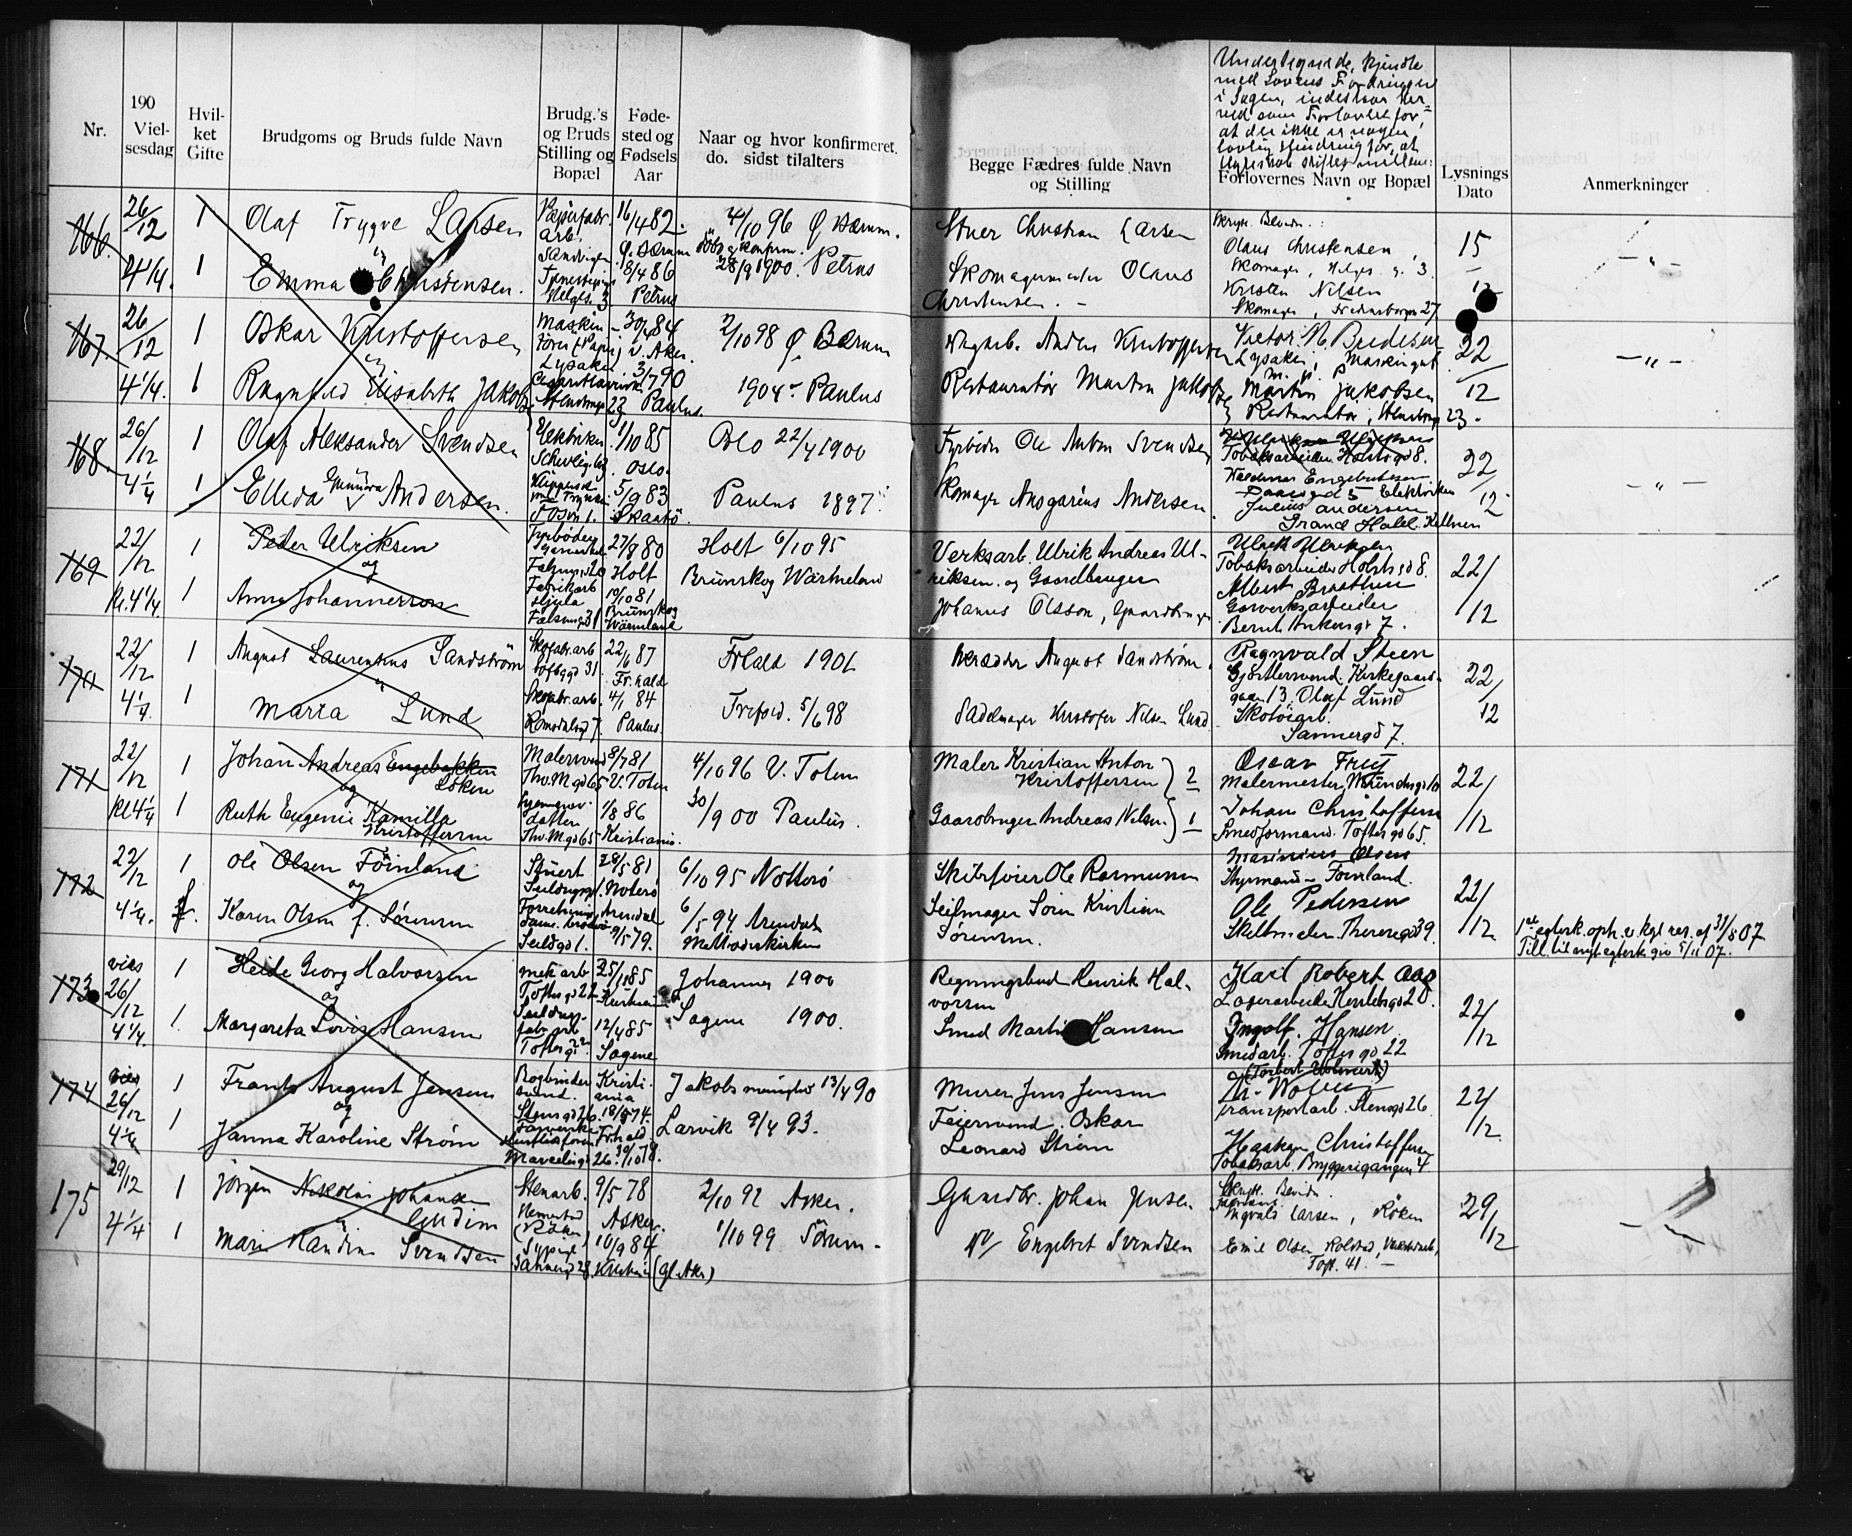 Nr.
190
Viel-
sesdag
Hvil-
ket
Gifte
Brudgoms og Bruds fulde Navn
Brudg.'s
og Bruds
Stilling og
Bopæl
Føde-
sted og
Fødsels
Aar
Naar og hvor konfirmeret.
do. sidst tilalters
Begge Fædres fulde Navn
og Stilling
Undertegnede, kjendte
med Lovens Fordringer
i Sagen, indestaar her-
ved som Forlovere for,
at der ikke er nogen
lovlig Hindring for, at
Forlovernes Navn og Bopæl
Lysnings
Dato
Anmerkninger
166.
26/12
4 1/4.
1
1
Olaf Trygve Larsen
Emma Christensen.
Papirfabr.
arb.
Sandviken
Helges. 3
16/4 82.
Ø. Bærum
8/4 86
Petrus
4/10 96 Ø. Bærum.
28/9 1900. Petrus
Stuer Christian Larsen
Skomagermester Olaus
Christensen. –
Skrift. Bevidn.:
Olaus Christensen,
Skomager, Helges. g. 3.
Kristen Nilsen
Skomager, Fredensborgv 27
15
12
– " –
167.
26/12
4 1/4.
1
1
Oskar Kristoffersen
Ragnhild Elisabeth Jakobsen
Maskin-
Lysaker
30/4 84
V. Aker.
3/7 90
Paulus.
2/10 98 Ø. Bærum
1904 – Paulus
Anders Kristoffersen
Restauratør Martin Jakobsen
Lysaker, Maskinist
Martin Jakobsen
Restauratør, 23.
22/12
– " –
168.
26/12
4 1/4
1
1
Olaf Aleksander Svendsen
Elleda Gunvra Andersen.
Elektriker
1/10 85
Oslo.
5/9 83
Skaatø
Oslo 22/4 1900
Paulus 1897
Fyrbøder Ole Anton Svendsen
Skomager Ansgarius Andersen
Tobaksarbeider Holstsgd 8.
Elektriker
Julius Andersen
Grand Hotel. Kellner
22/12
– " –
169
22/12
Kl. 4 1/4.
1
Peder Ulriksen
og
Anna Johannesson
Fyrbøder
Falsensgd 20
Fabrikarb
Hjula
Falsensgd 31
27/8 80
Holt
19/10 81
Brunskog
Wärmland
Holt 6/10 95
Brunskog Wärmeland
Verksarb. Ulrik Andreas Ul-
riksen. og Gaardbruger
Johannes Olsson, Gaardbruger
Ulrik Ulriksen
Tobaksarbeider Holstsgd 8.
Albert Braathen
Gasverksarbeider
Bernt Ankersgd 7.
22/12
170
22/12
4 1/4.
1
1
August Laurentius Sandstrøm
Maria Lund
Skofabr. arb
22/6 87
Fr. hald
4/1 84
Paulus.
Fr. hald 1901
5/6 98
Skrædder August Sandstrøm.
Sadelmager Kristofer Nilsen Lund.
Ragnvald Steen
Gjørtlersvend. Kirkegaards-
gaden 13. Olaf Lund
Skotøiarb.
Sannergd 7.
22/12
171
22/12
Kl 4 1/4
1
1
Johan Andreas Engebakken
Løken
og
Ruth Eugenie Kamilla
Kristoffersen
Malersvend
Thv. M. gd 65
Hjemmevær.
datter
Thv. M. gd 65
8/7 81
V. Toten
1/8 86
Kristiania
4/10 96 V. Toten
30/9 00 Paulus.
Maler Kristian Anton
Kristoffersen } 2
Gaardbruger Andreas Nilsen } 1
Oscar Frey
Johan Christoffersen
Smedformand. Toftesgd 65.
22/12
172
22/12
4 1/4.
1
f.
Ole Olsen Føinland
og
Karen Olsen f. Sørensen
Stuert
Seildugsgd 1.
Seildgd 1.
28/5 81
Nøterø
Arendal
9/5 79.
6/10 95 Nøtterø
6/5 94 Arendal
Methodistkirken
Skibsfører Ole Rasmussen
Seilmager Sørn Kristian
Sørensen.
Marinius Olsen
Styrmand – Føinland.
Ole Pedersen
Skiltmaler. Theresesgd 39.
22/12
1ste egtesk. oph. v. kgl. res. af 31/8 07
Till. til nyt egtesk. giv. 5/11 07.
173
vies
26/12
4 1/4.
1
1.
Heide Georg Halvorsen
og
Margareta Lovis Hansen
Mek. arb
Toftesgd 22
Seildugs-
fabr. arb
Toftesgt 22
25/1 85
Kristiania
12/4 85
Sagene
Johannes 1900
Sagene 1900.
Regningsbud Henrik Hal-
vorsen
Smed Martin Hansen
Karl Robert Aas
Lagerarbeider Herslebsgd 20.
Ingolf. Hansen
Smedarb. Toftesgd 22
22/12
174
vies
26/12
4 1/4
1
1
Frants August Jensen
og
Janna Karoline Strøm
Bogbinder
svend.
Stensgd 26.
Marcelisgd 26.
Kristi-
ania
18/5 74.
Fr. hald
30/10 78.
Jakobs menighed 13/4 90
Larvik 9/4 93.
Murer Jens Jensen
Feiersvend. Oskar
Leonard Strøm
Transportarb. Stensgd 26
Haakon Christoffersen
Tobaksarb. Bryggerigangen 4
22/12.
175
29/12
4 1/4
1
1
Jørgen Nikolai Johansen
Gudim
Marie Randine Svendsen
Stenarb.
(Røken
Sypige
9/5 78
Asker.
10/9 84
Kristiania (Gl. Aker)
2/10 92 Asker.
1/10 99 Sørum –
Gaardbr. Johan Jensen
Engebret Svendsen
Skrift. Bevidn.
Ingvald Larsen, Røken
Emil Olsen Rolstad, Verkstedarb.,
Toft. 41. –
29/12
– " –